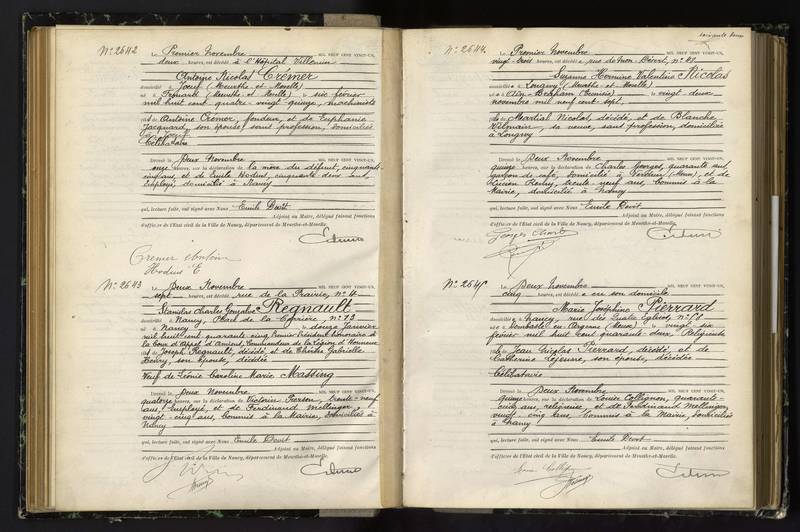 N° 2642
Le Premier Novembre MIL NEUF CENT VINGT-UN,
deux heures, est décédé à l'Hôpital Villemin
Antoine Nicolas Crémer
domicilié à Joeuf (Meurthe et Moselle)
né à (Meurthe et Moselle) le six février
mil huit cent quatre-vingt quinze, machiniste
fils de Antoine Crémer, fondeur, et de Euphanie
Jacquard, son épouse, sans profession, domiciliés
à Joeuf
Célibataire
Dressé le Deux Novembre MIL NEUF CENT VINGT-UN,
onze heures, sur la déclaration de la mère du défunt, cinquante-
cinq ans, et de Emile Hodus, cinquante deux ans,
employé, domicilié à Nancy
qui, lecture faite, ont signé avec Nous Emile Devit
Adjoint au Maire, délégué faisant fonctions
d'officier de l'État civil de la Ville de Nancy, département de Meurthe-et-Moselle.
Hodus E
N° 2643
Le Deux Novembre MIL NEUF CENT VINGT-UN,
sept heures, est décédé rue de la Prairie, n° 4
Stanislas Charles Gonzalve Regnault
domicilié à Nancy, Place de la Carrière, n°
né à Nancy le douze Janvier
mil huit cent quarante cinq, Premier Président honoraire à
la Cour d'Appel d'Amiens, Commandeur de la Légion d'Honneur
fils de Joseph Regnault, décédé, et de Gabrielle
son épouse, décédée
Veuf de Léonie Caroline Marie Massing
Dressé le Deux Novembre MIL NEUF CENT VINGT-UN,
quatorze heures, sur la déclaration de Victorin Pierson, trente-neuf
ans, Employé, et de Ferdinand Mellinger,
vingt-cinq ans, Commis à la Mairie, domiciliés à
Nancy
qui, lecture faite, ont signé avec Nous Emile Devit
Adjoint au Maire, délégué faisant fonctions
d'officier de l'État civil de la Ville de Nancy, département de Meurthe-et-Moselle.
N° 2644
Le Premier Novembre MIL NEUF CENT VINGT-UN,
vingt-trois heures, est décédée rue de
Suzanne Hermine Valentine Nicolas
domiciliée à Longwy (Meurthe et Moselle)
née à (Tunisie) le vingt deux
novembre mil neuf cent sept,
fille de Martial Nicolas, décédé, et de Blanche
sa veuve, sans profession, domiciliée
à Longwy
Dressé le Deux Novembre MIL NEUF CENT VINGT-UN,
quinze heures, sur la déclaration de Charles Georges, quarante
garçon de café, domicilié à Verdun (Meuse), et de
Lucien Remy, trente neuf ans, Commis à la
Mairie, domicilié à Nancy
qui, lecture faite, ont signé avec Nous Emile Devit
Adjoint au Maire, délégué faisant fonctions
d'officier de l'État civil de la Ville de Nancy, département de Meurthe-et-Moselle.
Georges
N° 2645
Le Deux Novembre MIL NEUF CENT VINGT-UN,
cinq heures, est décédée en son domicile
Marie Joséphine Pierrard
domiciliée à Nancy, rue des Quatre Eglises, n°
née à en Argonne (Meuse) le vingt six
février mil huit cent quarante deux, Religieuse
fille de Jean Nicolas Pierrard, décédé, et de
Catherine son épouse, décédée
Célibataire
Dressé le Deux Novembre MIL NEUF CENT VINGT-UN,
quinze heures, sur la déclaration de Louise Collignon, quarante-
cinq ans, religieuse, et de Ferdinand Mellinger,
vingt-cinq ans, Commis à la Mairie, domiciliés
à Nancy
qui, lecture faite, ont signé avec Nous Emile Devit
Adjoint au Maire, délégué faisant fonctions
d'officier de l'État civil de la Ville de Nancy, département de Meurthe-et-Moselle.